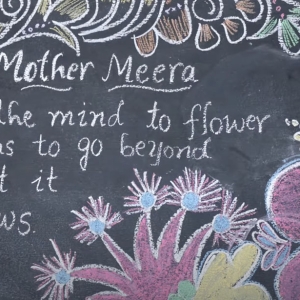 Mother Meera
the mind to flower
as to go beyond
t it
ws.